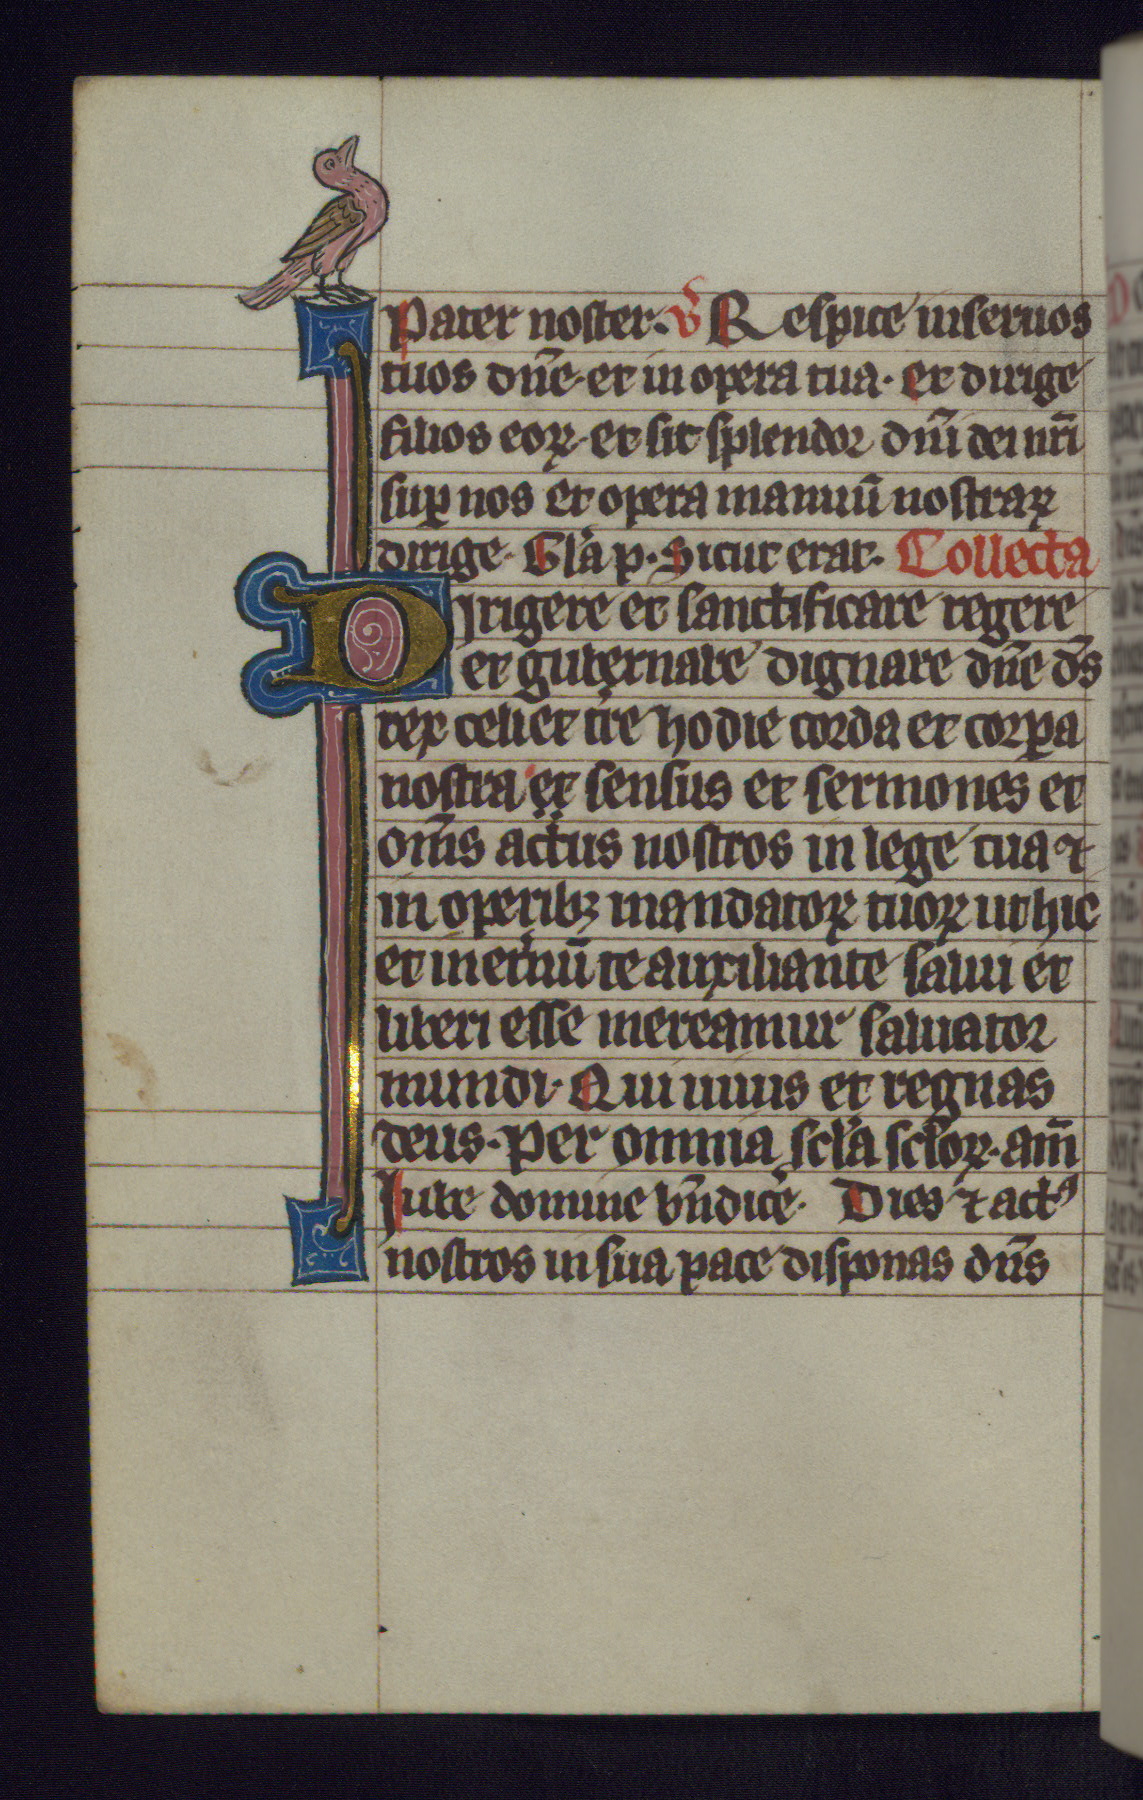 Pater noster. V̄ Respice in seruos
tuos dn̄e. et in opera tua. et dirige
filios eoꝝ. et sit splendor dn̄i dei nr̄i
suꝑ nos et opera manuū nostraꝝ
dirige. Gl̄a p. Sicut erat. Collecta
Dirigere et sanctificare regere
et gubernare dignare dn̄e ds̄
rex celi et t̄re hodie corda et corꝑa
nostra et sensus et sermones et
om̄s actus nostros in lege tua ⁊
in operibꝫ mandatoꝝ tuoꝝ ut hic
et in et̄nū te auxiliante salui et
liberi esse mereamur saluator
mundi. Qui uiuis et regnas
deus. Per omnia scl̄a scl̄oꝝ. am̄
Iube domine bn̄dicē. Dies ⁊ actꝰ
nostros in sua pace disponas dn̄s